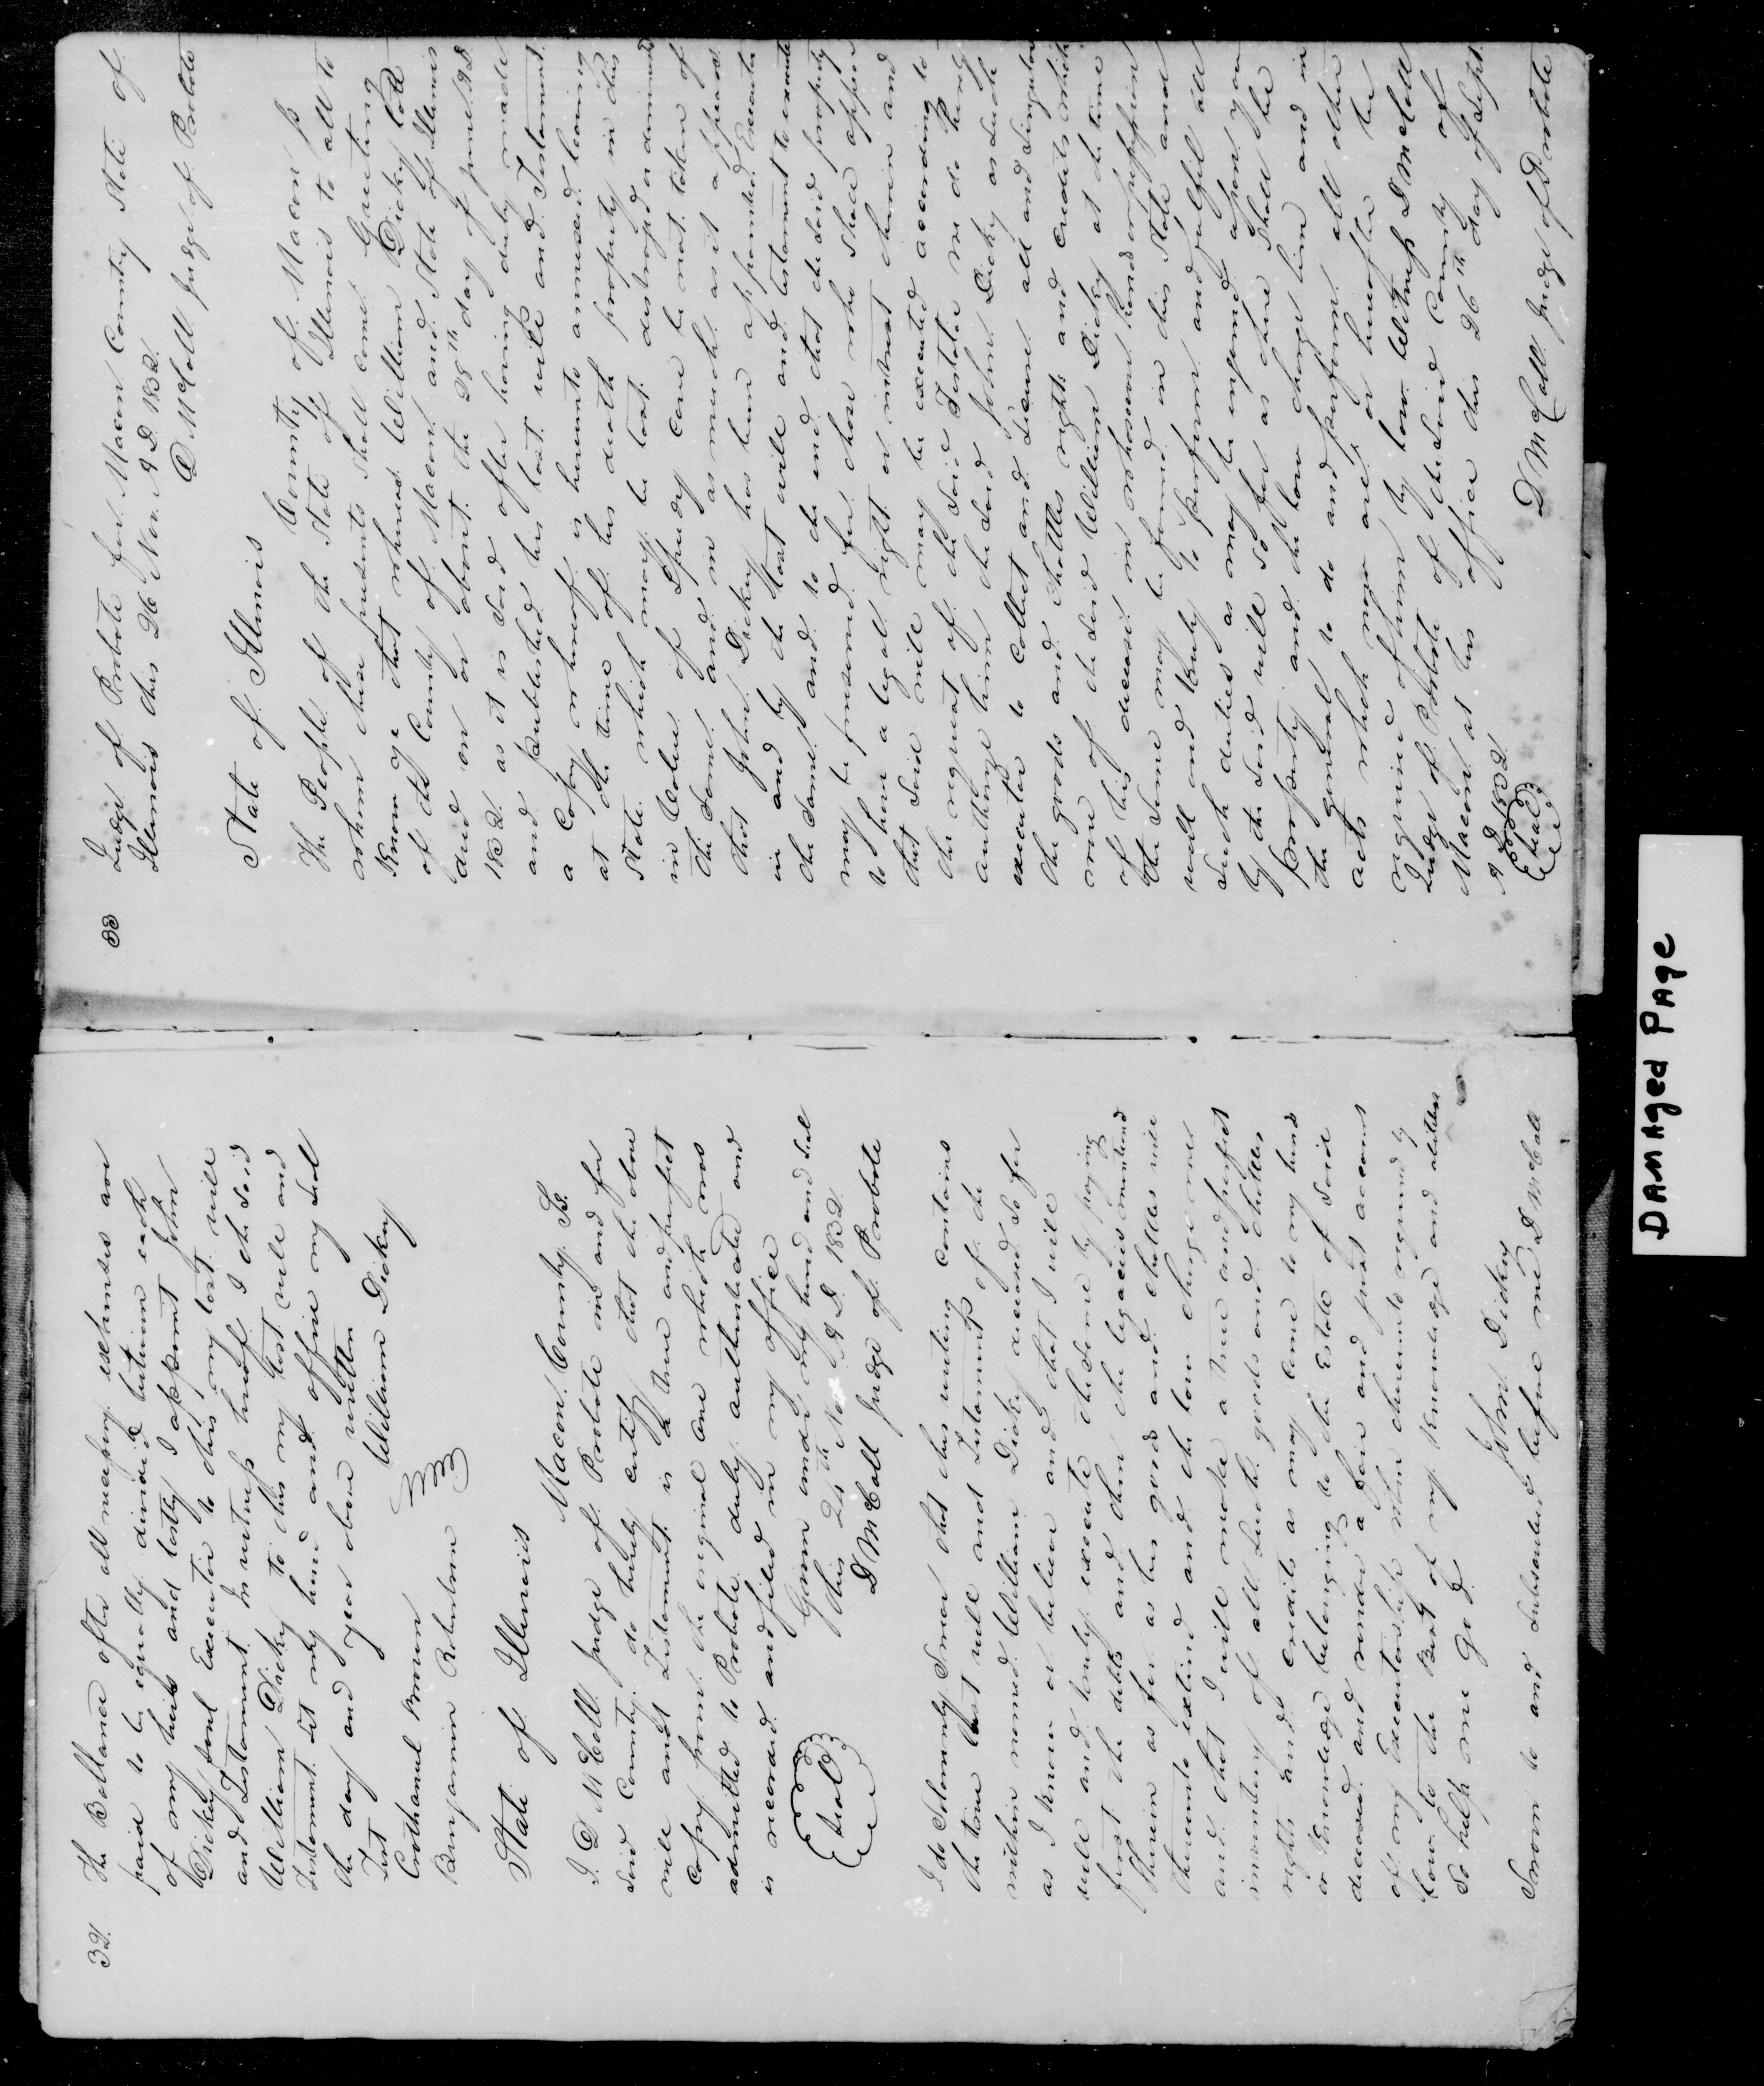 32.
The Ballance after all necessary expenses are
paid to be equally divided between each
of my heirs and lastly I appoint John
Dickey sole Executor to this my last will
and Testament In witness hereof I the said
William Dickey to this my last will and
Testament set my hand and affix my seal
the day and year above written
Test William Dickey
Benjamin Robertson
State of Illinois Macon County Ss.
I D McCall Judge of Probate in and for
said County do hereby certify that the above
will and Testament is a true and perfect
copy from the original one which was
admitted to Probate duly authenticated and
is recorded and filed in my office
Given under my hand and seal
this 26th Nov. A D. 1832.
D McCall Judge of Probate
Seal
I do Solemnly Swear that this writing contains
the true last will and Testament of the
within named William Dickey deceased so far
as I know or believe and that I will
well and truly execute the same by paying
first the debts and then the legacies mentioned
therein as far as his goods and chattles will
thereunto extend and the law charge me
and that I will make a true and perfect
inventory of all such goods and chattles
rights and credits as may come to my hands
or knowledge belonging to the Estate of said
deceased and render a fair and just account
of my Executorship when thereunto required by
law to the Best of my knowledge and abilities
So help me God John Dickey
Sworn to and subscribed before me D McCall
33
Judge of Probate for Macon County State of
Illenois this 26 Nov. A D. 1832.
D McCall Judge of Probate
State of Illinois County of Macon
The People of the State of Illenois to all to
whom these presents shall come Greeting
Know ye that whereas William Dickey late
of the County of Macon and State of Illenois
died on or about the 28th day of June A D
1832 as it is said after having duly made
and published his last will and Testament
a copy whereof is hereunto annexed leaving
at the time of his death property in this
State which may be lost destroyed or diminished
in value if speedy care be not taken of
the same and in as much as it appears
that John Dickey has been appointed Executor
in and by the last will and testament to execute
the same and to the end that the said property
may be preserved for those who shall appear
to have a legal right or intrest therein and
that said will may be executed according to
the request of the said Testator we do hereby
authorize him the said John Dickey as such
executor to collect and secure all and singular
the goods and chattles rights and credits which
were of the said William Dickey at the time
of his decease in whosoever hands or possession
the same may be found in this State and
well and truly to perform and fulfil all
such duties as may be enjoined upon you
by the said will so far as there shall be
property and the law charge him and in
the general to do and perform all other
acts which now are or hereafter may be
required of him by law Witness D McCall
Judge of Probate of the said County of
Macon at his office this 26th day of Sept.
A D 1832.
Seal D McCall Judge of Probate
DAMAged PAge